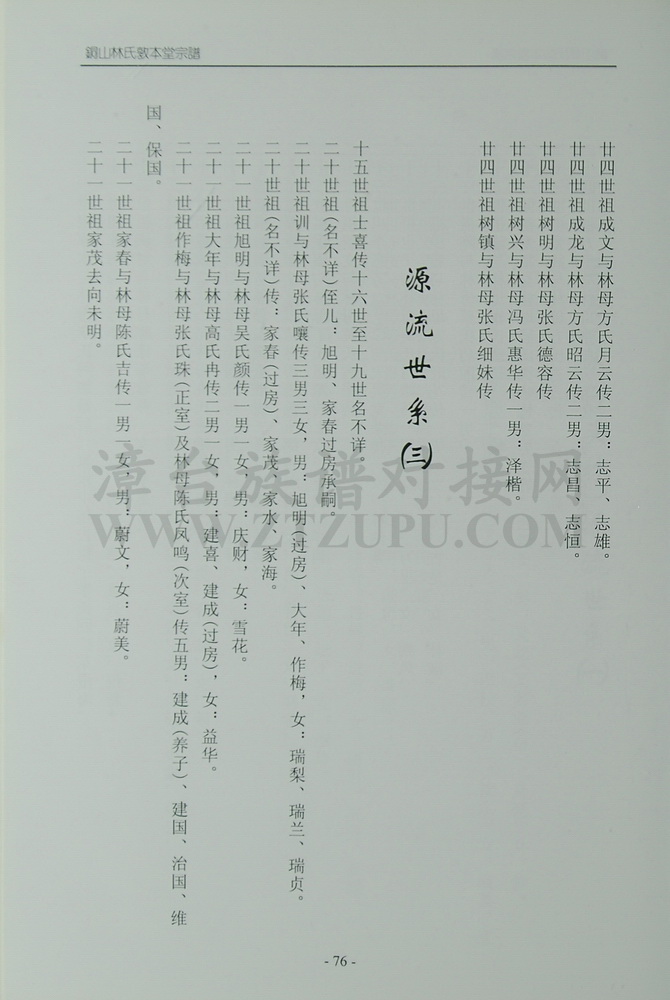 銅山林氏敦本堂宗譜
廿四世祖成文与林母方氏月云传二男：志平、志雄。
廿四世祖成龙与林母方氏昭云传二男：志昌、志恒。
廿四世祖树明与林母张氏德容传
廿四世祖树兴与林母冯氏惠华传一男：泽楷。
廿四世祖树镇与林母张氏细妹传
源流世系(三)
十五世祖士喜传十六世至十九世名不详。
二十世祖(名不详)侄儿：旭明、家春过房承嗣。
二十世祖训与林母张氏嚷传三男三女，男：旭明(过房)、大年、作梅，女：瑞梨、瑞兰、瑞贞。
二十世祖(名不详)传：家春(过房)、家茂、家水、家海。
二十一世祖旭明与林母吴氏颜传一男一女，男：庆财，女：雪花。
二十一世祖大年与林母高氏冉传二男一女，男：建喜、建成(过房)，女：益华。
二十一世祖作梅与林母张氏珠(正室)及林母陈氏凤鸣(次室)传五男：建成(养子)、建国、治国、维
国、保国。
二十一世祖家春与林母陈氏吉传一男一女，男：蔚文，女：蔚美。
二十一世祖家茂去向未明。
漳台族谱对接网
WWW.ZTZUPU.COM
- 76 -